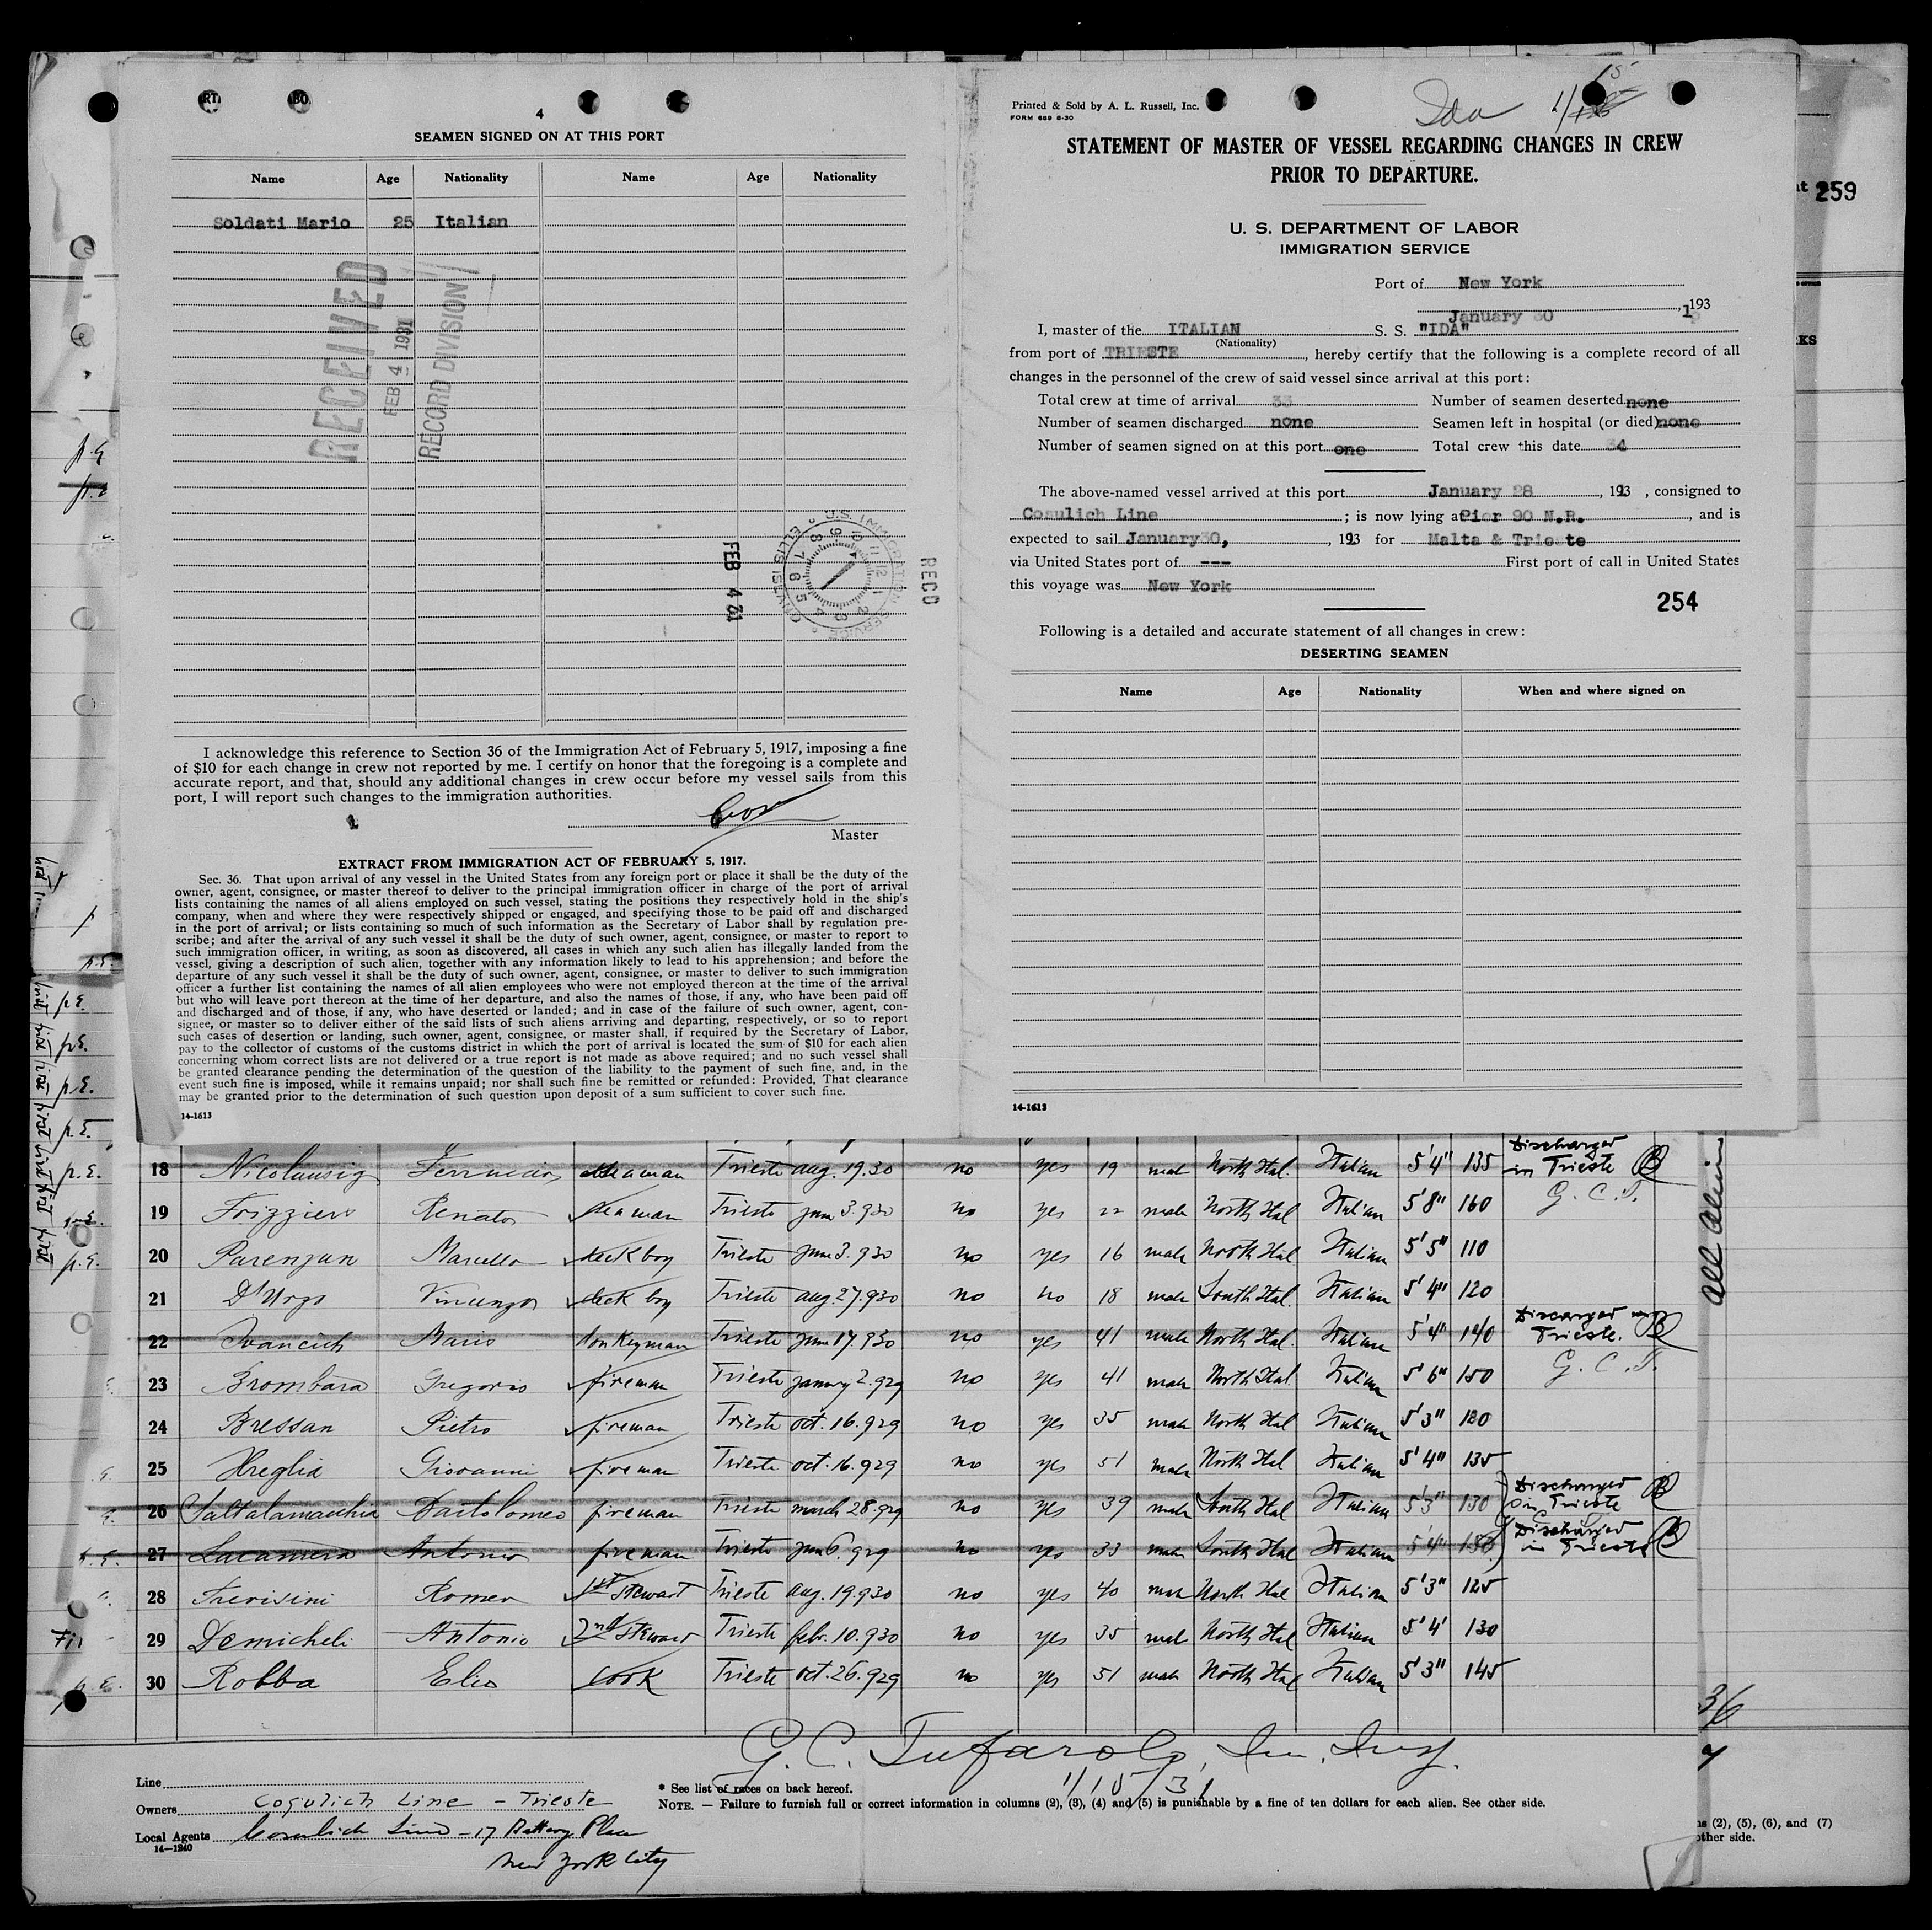 4
SEAMEN SIGNED ON AT THIS PORT
Name Age Nationality Name Age Nationality
Soldati Mario 25 Italian
RECEIVED
FEB 4 1931
RECORD DIVISION
FEB 4 31
U.S. IMMIGRATION SERVICE
ELLIS
RECD
I acknowledge this reference to Section 36 of the Immigration Act of February 5, 1917, imposing a fine
of $10 for each change in crew not reported by me. I certify on honor that the foregoing is a complete and
accurate report, and that, should any additional changes in crew occur before my vessel sails from this
port, I will report such changes to the immigration authorities.
Master
EXTRACT FROM IMMIGRATION ACT OF FEBRUARY 5, 1917.
Sec. 36. That upon arrival of any vessel in the United States from any foreign port or place it shall be the duty of the
owner, agent, consignee, or master thereof to deliver to the principal immigration officer in charge of the port of arrival
lists containing the names of all aliens employed on such vessel, stating the positions they respectively hold in the ship's
company, when and where they were respectively shipped or engaged, and specifying those to be paid off and discharged
in the port of arrival; or lists containing so much of such information as the Secretary of Labor shall by regulation pre-
scribe; and after the arrival of any such vessel it shall be the duty of such owner, agent, consignee, or master to report to
such immigration officer, in writing, as soon as discovered, all cases in which any such alien has illegally landed from the
vessel, giving a description of such alien, together with any information likely to lead to his apprehension; and before the
departure of any such vessel it shall be the duty of such owner, agent, consignee, or master to deliver to such immigration
officer a further list containing the names of all alien employees who were not employed thereon at the time of the arrival
but who will leave port thereon at the time of her departure, and also the names of those, if any, who have been paid off
and discharged and of those, if any, who have deserted or landed; and in case of the failure of such owner, agent, con-
signee, or master so to deliver either of the said lists of such aliens arriving and departing, respectively, or so to report
such cases of desertion or landing, such owner, agent, consignee, or master shall, if required by the Secretary of Labor,
pay to the collector of customs of the customs district in which the port of arrival is located the sum of $10 for each alien
concerning whom correct lists are not delivered or a true report is not made as above required; and no such vessel shall
be granted clearance pending the determination of the question of the liability to the payment of such fine, and, in the
event such fine is imposed, while it remains unpaid; nor shall such fine be remitted or refunded: Provided, That clearance
may be granted prior to the determination of such question upon deposit of a sum sufficient to cover such fine.
14-1613
Printed & Sold by A. L. Russell, Inc.
FORM 689 6-30
Ida
STATEMENT OF MASTER OF VESSEL REGARDING CHANGES IN CREW
PRIOR TO DEPARTURE.
U. S. DEPARTMENT OF LABOR
IMMIGRATION SERVICE
Port of New York
January 30, 1931
I, master of the ITALIAN S. S. "IDA"
(Nationality)
from port of TRIESTE, hereby certify that the following is a complete record of all
changes in the personnel of the crew of said vessel since arrival at this port:
Total crew at time of arrival 33 Number of seamen deserted none
Number of seamen discharged none Seamen left in hospital (or died) none
Number of seamen signed on at this port one Total crew this date 34
The above-named vessel arrived at this port January 28, 1931, consigned to
Cosulich Line; is now lying at Pier 90 N.R., and is
expected to sail January 30, 1931 for Malta & Trieste
via United States port of --- First port of call in United States
this voyage was New York
254
Following is a detailed and accurate statement of all changes in crew:
DESERTING SEAMEN
Name Age Nationality When and where signed on
14-1613
259
18 Nicolausig Ferruccio seaman Trieste aug. 19.30 no yes 19 male North Ital. Italian 5'4" 135 Discharged in Trieste
G. C. T.
19 Frizziero Renato seaman Trieste june 3.930 no yes 22 male North Ital Italian 5'8" 160
20 Parenzan Marcello deck boy Trieste june 3.930 no yes 16 male North Ital Italian 5'5" 110
21 D'Urzo Vincenzo deck boy Trieste aug. 27.930 no no 18 male South Ital. Italian 5'4" 120
22 Ivancich Mario donkeyman Trieste june 17.930 no yes 41 male North Ital. Italian 5'4" 140 Discarged in Trieste.
G. C. T.
23 Brombara Gregorio fireman Trieste january 2.929 no yes 41 male North Ital. Italian 5'6" 150
24 Bressan Pietro fireman Trieste oct. 16.929 no yes 35 male North Ital Italian 5'3" 120
25 Hreglia Giovanni fireman Trieste oct. 16.929 no yes 51 male North Ital Italian 5'4" 135
26 Saltalamacchia Bartolomeo fireman Trieste march 28.929 no yes 39 male South Ital Italian 5'3" 130 Discharged in Trieste
27 Lacamera Antonio fireman Trieste june 6.929 no yes 33 male South Ital Italian 5'4" 130 Discharged in Trieste
28 Trevisini Romeo 1st Stewart Trieste aug. 19.930 no yes 40 male North Ital Italian 5'3" 125
29 Demicheli Antonio 2nd Steward Trieste febr. 10.930 no yes 35 male North Ital Italian 5'4' 130
30 Robba Elio cook Trieste oct. 26.929 no yes 51 male North Ital Italian 5'3" 145
All Aliens
36
G. C. Tufarolo, Im. Insp.
1/15/31
Line
Owners Cosulich Line - Trieste
Local Agents Cosulich Line - 17 Battery Place
New York City
14—1240
* See list of races on back hereof.
NOTE. — Failure to furnish full or correct information in columns (2), (3), (4) and (5) is punishable by a fine of ten dollars for each alien. See other side.
(2), (5), (6), and (7)
other side.